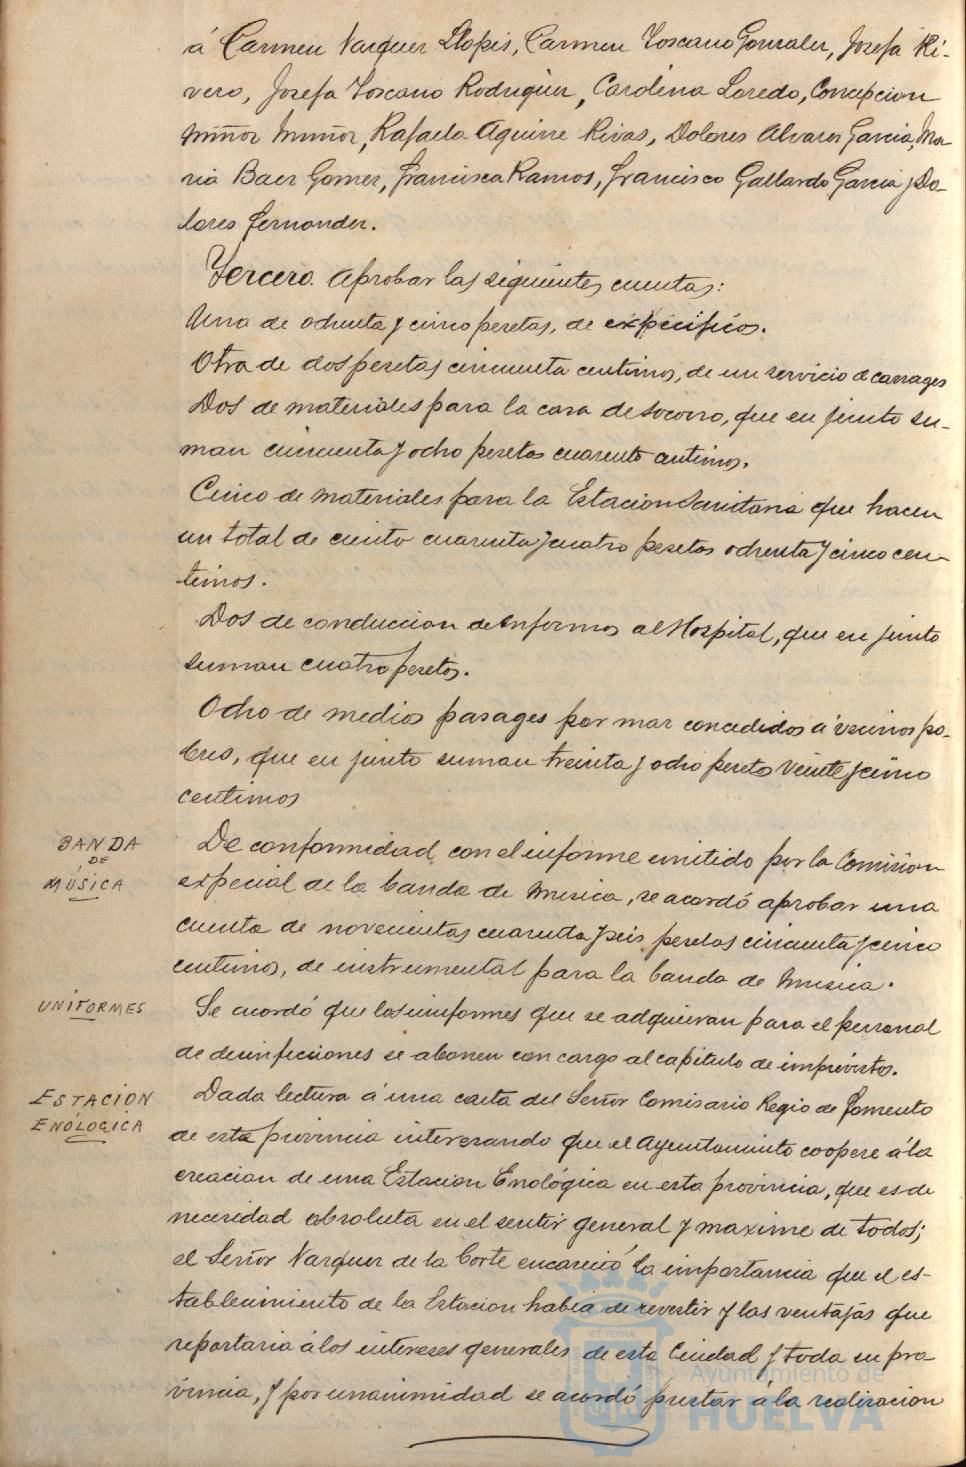 á Carmen Vazquez Llopis, Carmen Toscano Gonzalez, Josefa Ri-
vero, Josefa Toscano Rodriguez, Carolina Loredo, Concepcion
Muñoz Muñoz, Rafaela Aguirre Rivas, Dolores Alvarez Garcia, Ma-
ria Baez Gomez, Francisca Ramos, Francisco Gallardo Garcia y Do-
lores Fernandez.
Tercero. Aprobar las siguientes cuentas:
Una de ochenta y cinco pesetas, de expecificos.
Otra de dos pesetas cincuenta centimos, de un servicio de carrages
Dos de materiales para la casa de socorro, que en junto su-
man cincuenta y ocho pesetas cuarenta centimos.
Cinco de materiales para la Estacion Sanitaria que hacen
un total de ciento cuarenta y cuatro pesetas ochenta y cinco cen-
timos.
Dos de conduccion de enfermos al Hospital, que en junto
suman cuatro pesetas.
Ocho de medios pasages por mar concedidos á vecinos po-
bres, que en junto suman treinta y ocho pesetas veinte y cinco
centimos
BANDA
DE
MÚSICA
De conformidad con el informe emitido por la Comision
especial de la banda de musica, se acordó aprobar una
cuenta de novecientas cuarenta y seis pesetas cincuenta y cinco
centimos, de instrumental para la banda de musica.
UNIFORMES
Se acordó que los uniformes que se adquieran para el personal
de desinfecciones se abonen con cargo al capitulo de imprevistos.
ESTACION
ENÓLOGICA
Dada lectura á una carta del Señor Comisario Regio de Fomento
de esta provincia interesando que el Ayuntamiento coopere á la
creacion de una Estacion Enológica en esta provincia, que es de
necesidad absoluta en el sentir general y maxime de todos;
el Señor Vazquez de la Corte encareció la importancia que el es-
tablecimiento de la Estacion habia de revestir y las ventajas que
reportaria á los intereses generales de esta Ciudad y toda su pro-
vincia, y por unanimidad se acordó prestar á la realizacion
ET TERRA
Ayuntamiento de
HUELVA